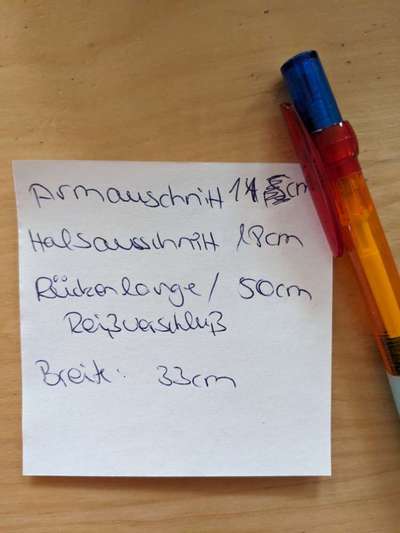 Armauschnitt 14 cm
Halsausschnitt 18cm
Rückenlange / 50cm
Reißverschluß
Breite: 33cm